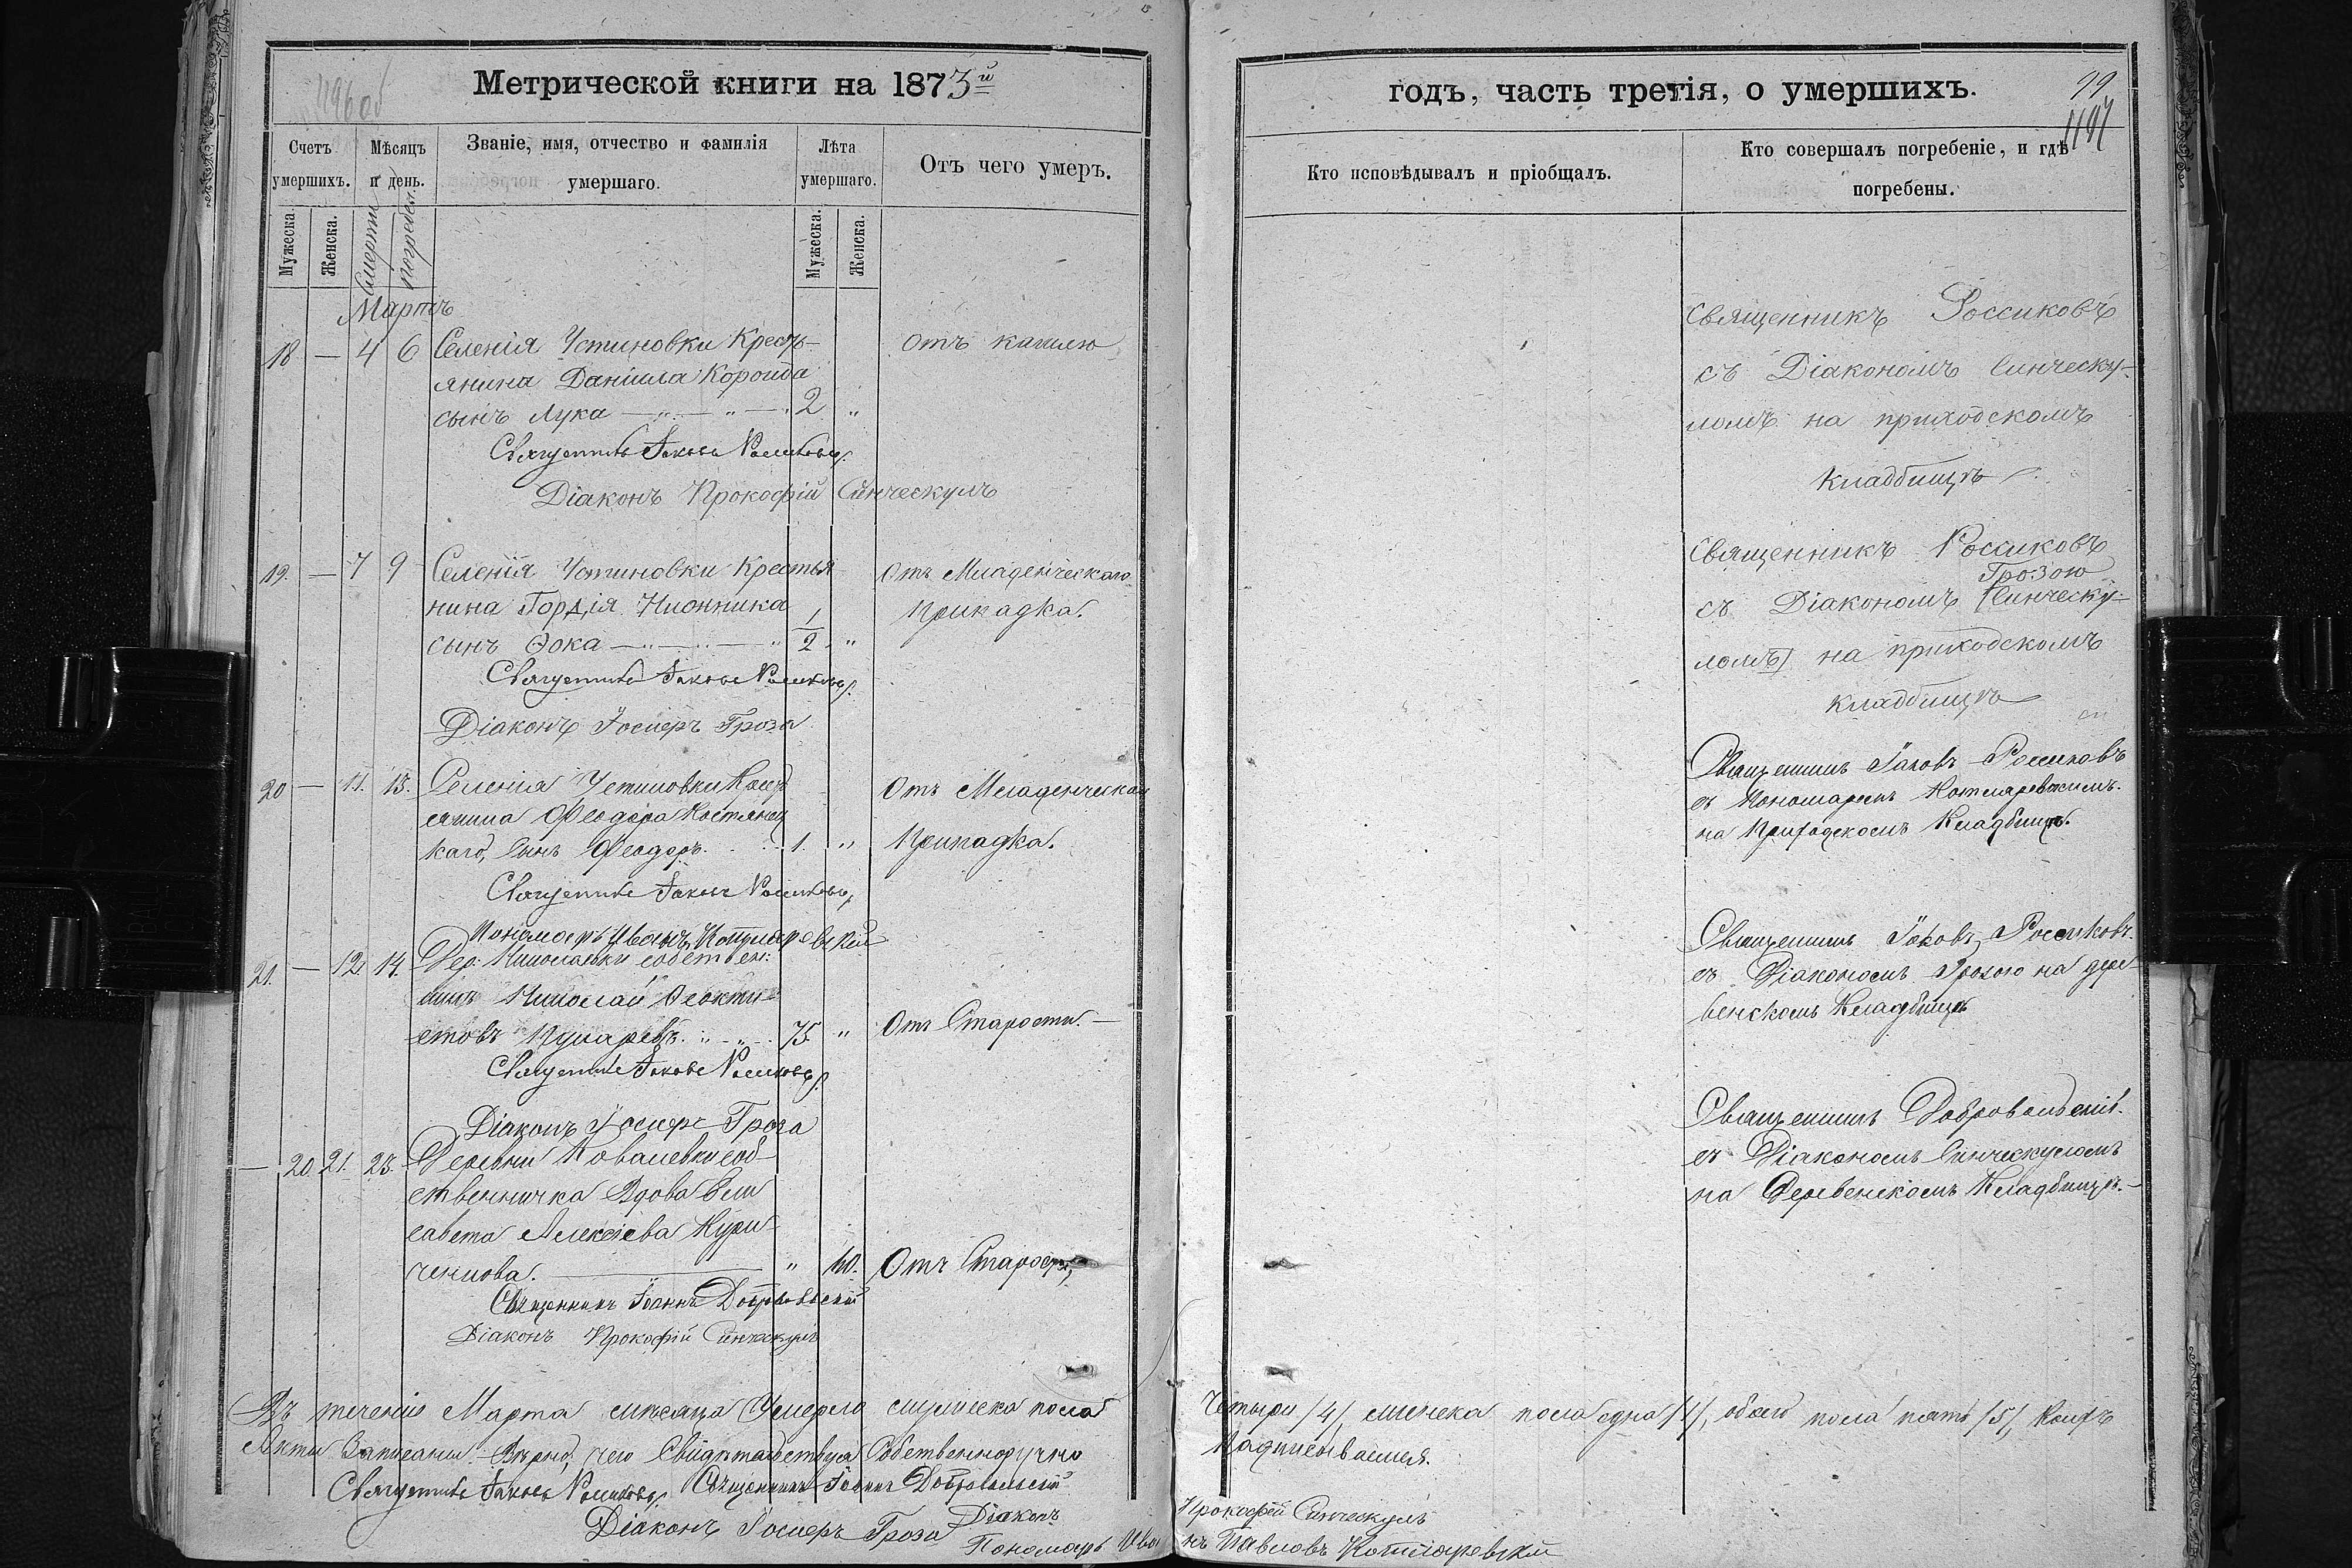 Метрической книги на 1873й
Счетъ умершихъ.
Мѣсяцъ и день.
Званіе, имя, отчество и фамилія умершаго.
Лѣта умершаго.
Отъ чего умеръ.
Мужеска.
Женска.
Смерти
погребен.
Мужеска.
Женска.
Мартъ
18 — 4 6 Селенія Устиновки Кресть- отъ кашлю
янина Даніила
сынъ Лука — „ — „ — „ 2 „
Священникъ Іаковъ Россиковъ
Діаконъ Прокофій Синческулъ
19. — 7 9 Селенія Устиновки Крестья Отъ Младенческаго
нина Гордія 1/2 припадка.
сынъ Ѳока — „ — „ — „ „
Священникъ Іаковъ Россиковъ
Діаконъ Іосифъ Гроза
20 — 11. 13. Селенія Устиновки Крест Отъ Младенческаго
янина Феодора Костянец
каго, сынъ Феодоръ. 1. „ Припадка.
Священникъ Іаковъ Россиковъ
Пономарь Иванъ Котляревскій
21. — 12 14. Дер. Николаевки собствен:
никъ Николай Феокти
стовъ 75. „ Отъ Старости. —
Священникъ Іаковъ Россиковъ
Діаконъ Іосифъ Гроза
— 20 21. 23. Деревни Ковалевки соб-
ственничка Вдова Ели
савета Алексіева Кури
ченкова. — „ 60. Отъ Старости,
Священникъ Іоаннъ Добровольскій
Діаконъ Прокофій Синческулъ
Въ теченіе Марта мѣсяца Умерло мужеска пола
Акты Записаны Вѣрно, чего Свидѣтельствуя Собственноручно
Священникъ Іаковъ Россиковъ Священникъ Іоаннъ Добровольскій
Діаконъ Іосифъ Гроза Діаконъ
Пономарь Ива
годъ, часть третія, о умершихъ.
99
Кто исповѣдывалъ и пріобщалъ.
Кто совершалъ погребеніе, и гдѣ
погребены.
Священникъ Россиковъ
съ Діакономъ Синческу-
ломъ на приходскомъ
Кладбищѣ
Священникъ Россиковъ
Грозою
съ Діакономъ (Синческу-
ломъ) на приходскомъ
кладбищѣ
Священникъ Іаковъ Россиковъ
съ Пономаремъ Котляревскимъ.
на Приходскомъ Кладбищѣ.
Священникъ Іаковъ Россиковъ.
съ Діакономъ Грозою на дере-
венскомъ Кладбищѣ
Священникъ Добровольскій.
съ Діакономъ Синческуломъ
на Деревенскомъ Кладбищѣ. —
Четыри /4/, женска пола одна /1/, обоего пола пять /5/, Коихъ
Подписываемся.
Прокофій Синческулъ
нъ Павловъ Котляревскій